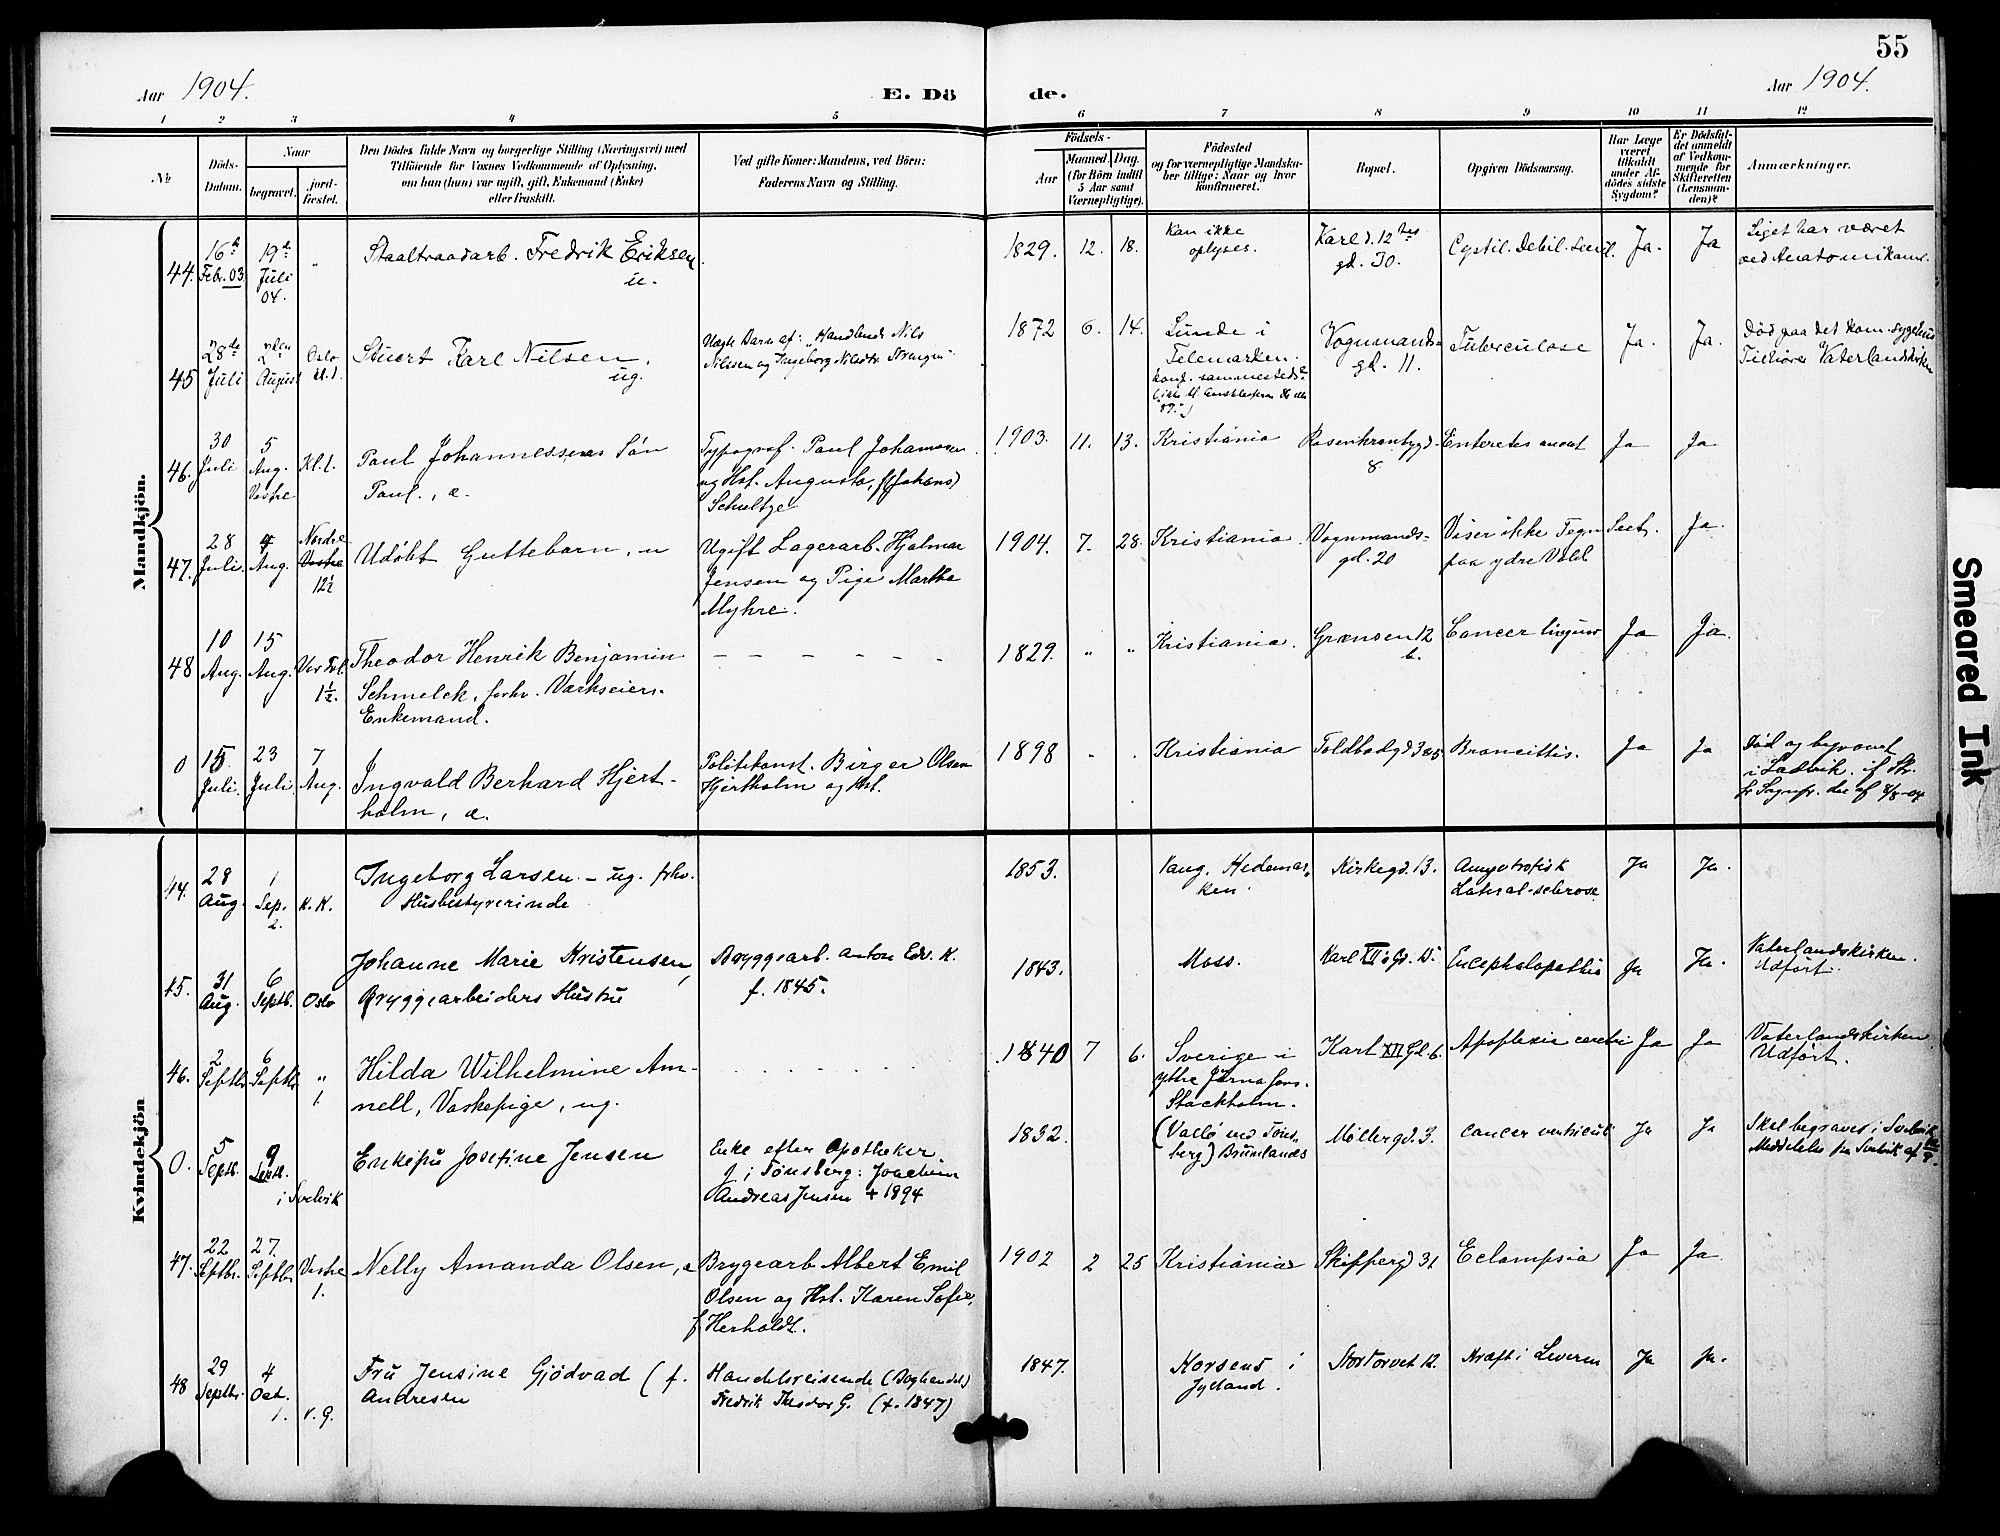 55
Aar 1904.
E. Dö
de.
Aar 1904.
1 2 3 4 5 6 7 8 9 10 11 12
№
Döds-
Datum.
Naar
begravet.
jord-
fæstet.
Den Dödes fulde Navn og borgerlige Stilling (Næringsvei) med
Tilföiende for Voxnes Vedkommende af Oplysning,
om han (hun) var ugift, gift, Enkemand (Enke)
eller fraskilt.
Ved gifte Koner: Mandens, ved Börn:
Faderens Navn og Stilling.
Födsels-
Aar
Maaned. Dag.
(for Börn indtil
5 Aar samt
Værnepligtige).
Födested
og for værnepligtige Mandska-
ber tillige: Naar og hvor
konfirmeret.
Bopæl.
Opgiven Dödsaarsag.
Har Læge
været
tilkaldt
under Af-
dödes sidste
Sygdom?
Er Dödsfal-
det anmeldt
af Vedkom-
mende for
Skifteretten
(Lensman-
den)?
Anmærkninger.
Mandkjön.
44.
16de
Febr. 03
19de
Juli
04.
"
Staaltraadarb. Fredrik Eriksen
u.
1829. 12. 18.
Kan ikke
oplyses.
Karl d. 12tes
gd. 30.
Cystit. Debil. senil.
Ja. Ja
Liget har været
ved Anatomikam.
45
28de
Juli
2den
August
Oslo
kl. 1.
Stuert Karl Nilsen,
ug.
Uægte Barn af: "Handlende Nils
Nilssen og Ingeborg Nilsdtr
1872 6. 14.
Lunde i
Telemarken.
konf. sammesteds
Vognmands-
gd. 11.
Tuberculose
Ja. Ja.
Död paa det kom. sygehus
Tilhörer Vaterlandskirken
46.
30
Juli
5
Aug.
Vestre
Kl. 1.
Paul Johannessens Sön
Paul., æ.
Typograf. Paul Johannesen
og Hst. Augusta, f (Johans)
Schultze
1903. 11. 13.
Kristiania
Rosenkranbygd.
8.
Enteretes
Ja Ja.
47.
28
Juli.
4
Aug.
Nordre
Vestre
12½
Udöbt Guttebarn, u
Ugift Lagerarb. Hjalmar
Jensen og Pige Marthe
Myhre.
1904. 7. 28.
Kristiania.
Vognmands-
gd. 20
Viser ikke Tegn
paa ydre Vold
Sect. Ja.
48
10
Aug.
15
Aug.
1½.
Theodor Henrik Benjamin
Schmelck, forhv. Værkseier.
Enkemand.
– – – – – –
1829. " "
Kristiania.
Grænsen 12
b.
Cancer linguæ
Ja Ja.
0
15.
Juli.
23
Juli
7
Aug.
Ingvald Berhard Hjert-
holm, æ.
Politikonst. Birger Olsen
Hjertholm og Hst.
1898 " .
Kristiania
Toldbodgd 3
Broncittis.
Ja Ja
Död og begravet
i Ladvik. if Skr.
Kvindekjön
44.
28
Aug.
1
Sep.
2.
K. K.
Ingeborg Larsen – ug. forhv.
Husbestyrerinde
1853.
Vang. Hedemar-
ken.
Kirkegd. 13.
Amyotrofisk
Lateral-sclerose
Ja Ja.
45.
31
Aug.
6
Septb.
Oslo
Johanne Marie Kristensen,
Bryggearbeiders Hustru
Bryggearb. Anton Edv. K.
f. 1845.
1843.
Moss.
Karl XIIs Gd. 15.
Encephalopathia
Ja Ja.
Vaterlandskirken.
Udfört.
46.
2
Septbr
6
Septbr
"
1.
Hilda Wilhelmine Am-
nell, Vaskepige, ug.
1840 7 6.
Sverige i
ytre Järna fors.
Stockholm.
Karl XII Gd. 6.
Apoplexia cerebri
Ja Ja
Vaterlandskirken
Udfört.
0.
5
Septb.
9
Septb.
i Svelvik
Enkefru Josefine Jensen
Enke efter Apotheker
J i Tönsberg: Joachim
Andreas Jensen + 1894
1832.
(Vallö ved Töns-
berg) Brunlanæs
Möllergd. 3.
Cancer ventriculi
Ja Ja
Skal begraves i Svelvik
Meddelelse fra Svelvik af
47.
22
Septbr.
27.
Septbr
Vestre
1.
Nelly Amanda Olsen, æ
Brygearb Albert Emil
Olsen og Hst. Karen Sofie,
f Herholdt.
1902 2 25
Kristiania
Skipperg 31
Eclampsia
Ja Ja
48
29
Septbr.
4
Oct.
1.
V. G.
Fru Jensine Gjödvad (f.
Andresen
Handelsreisende (Boghandel)
Fredrik Theodor G. (f. 1847)
1847.
Horsens i
Jylland.
Stortorvet 12.
Kræft i Leveren
Ja Ja.
Smeared Ink